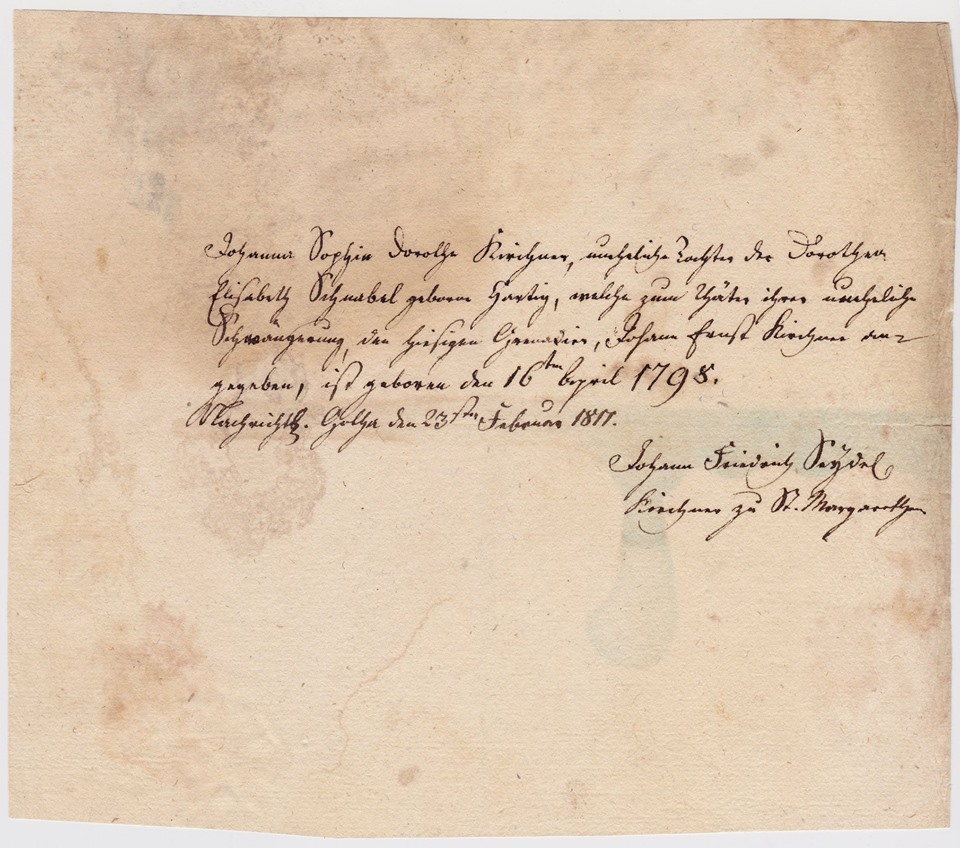 Johanna Sophie Dorothe Kirchner, uneheliche Tochter der Dorothea
Elisabeth Schnabel geborne Hartig, welche zum Thäter ihrer uneheliche
Schwängerung, den hiesigen Grenadier, Johann Ernst Kirchner an-
gegeben, ist geboren den 16ten April 1798.
Nachrichtl. Gotha den 23sten Februar 1811.
Johann Friedrich Seydel
Kirchner zu St. Margarethen